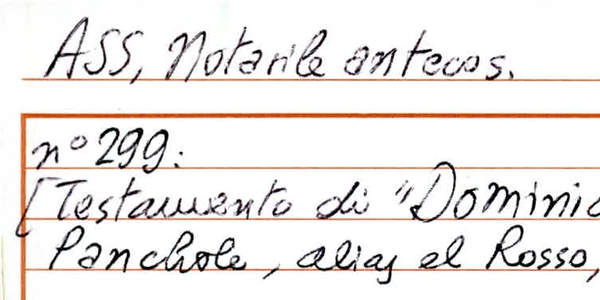 ASS, Notarile antecos.
n° 299:
[Testamento di "Dominic
Panchole, alias el Rosso,